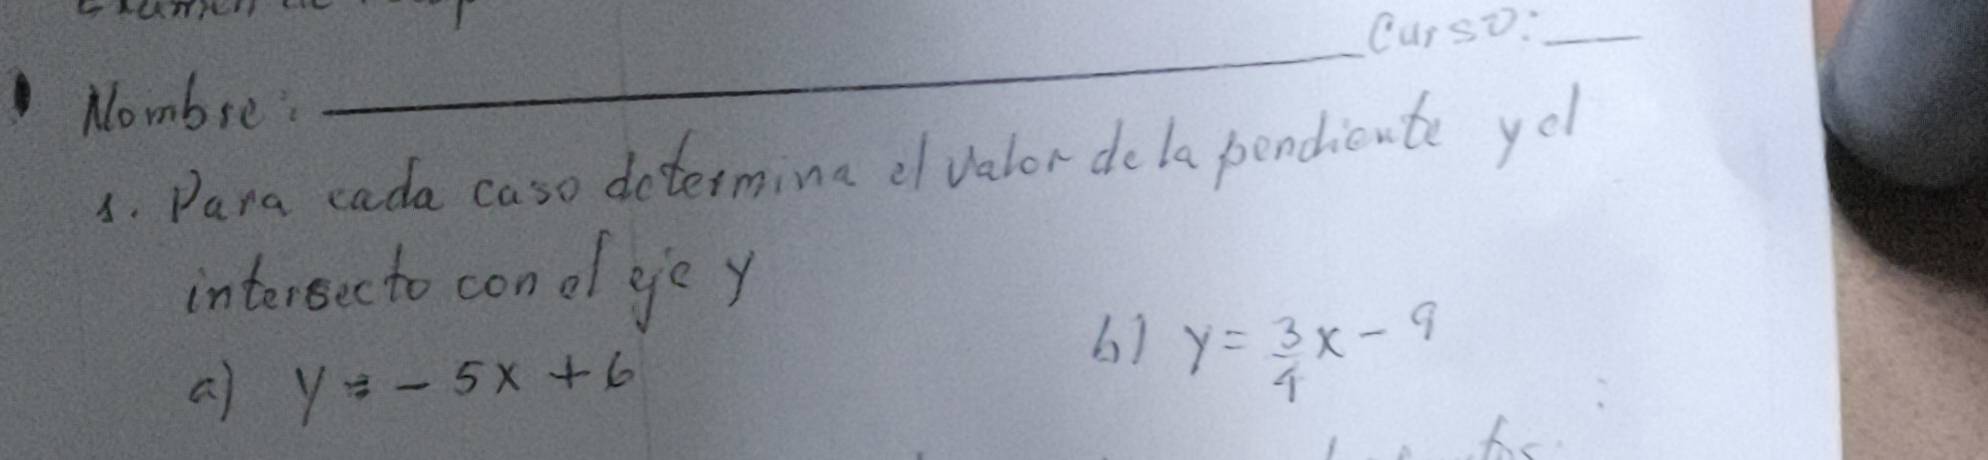 Examen de
Curso: ___
Nombre: ___
1. Para cada caso determina el valor de la pendiente y el
intersecto con el eje y
a) y = - 5x + 6
b) y = 3/4 x - 9